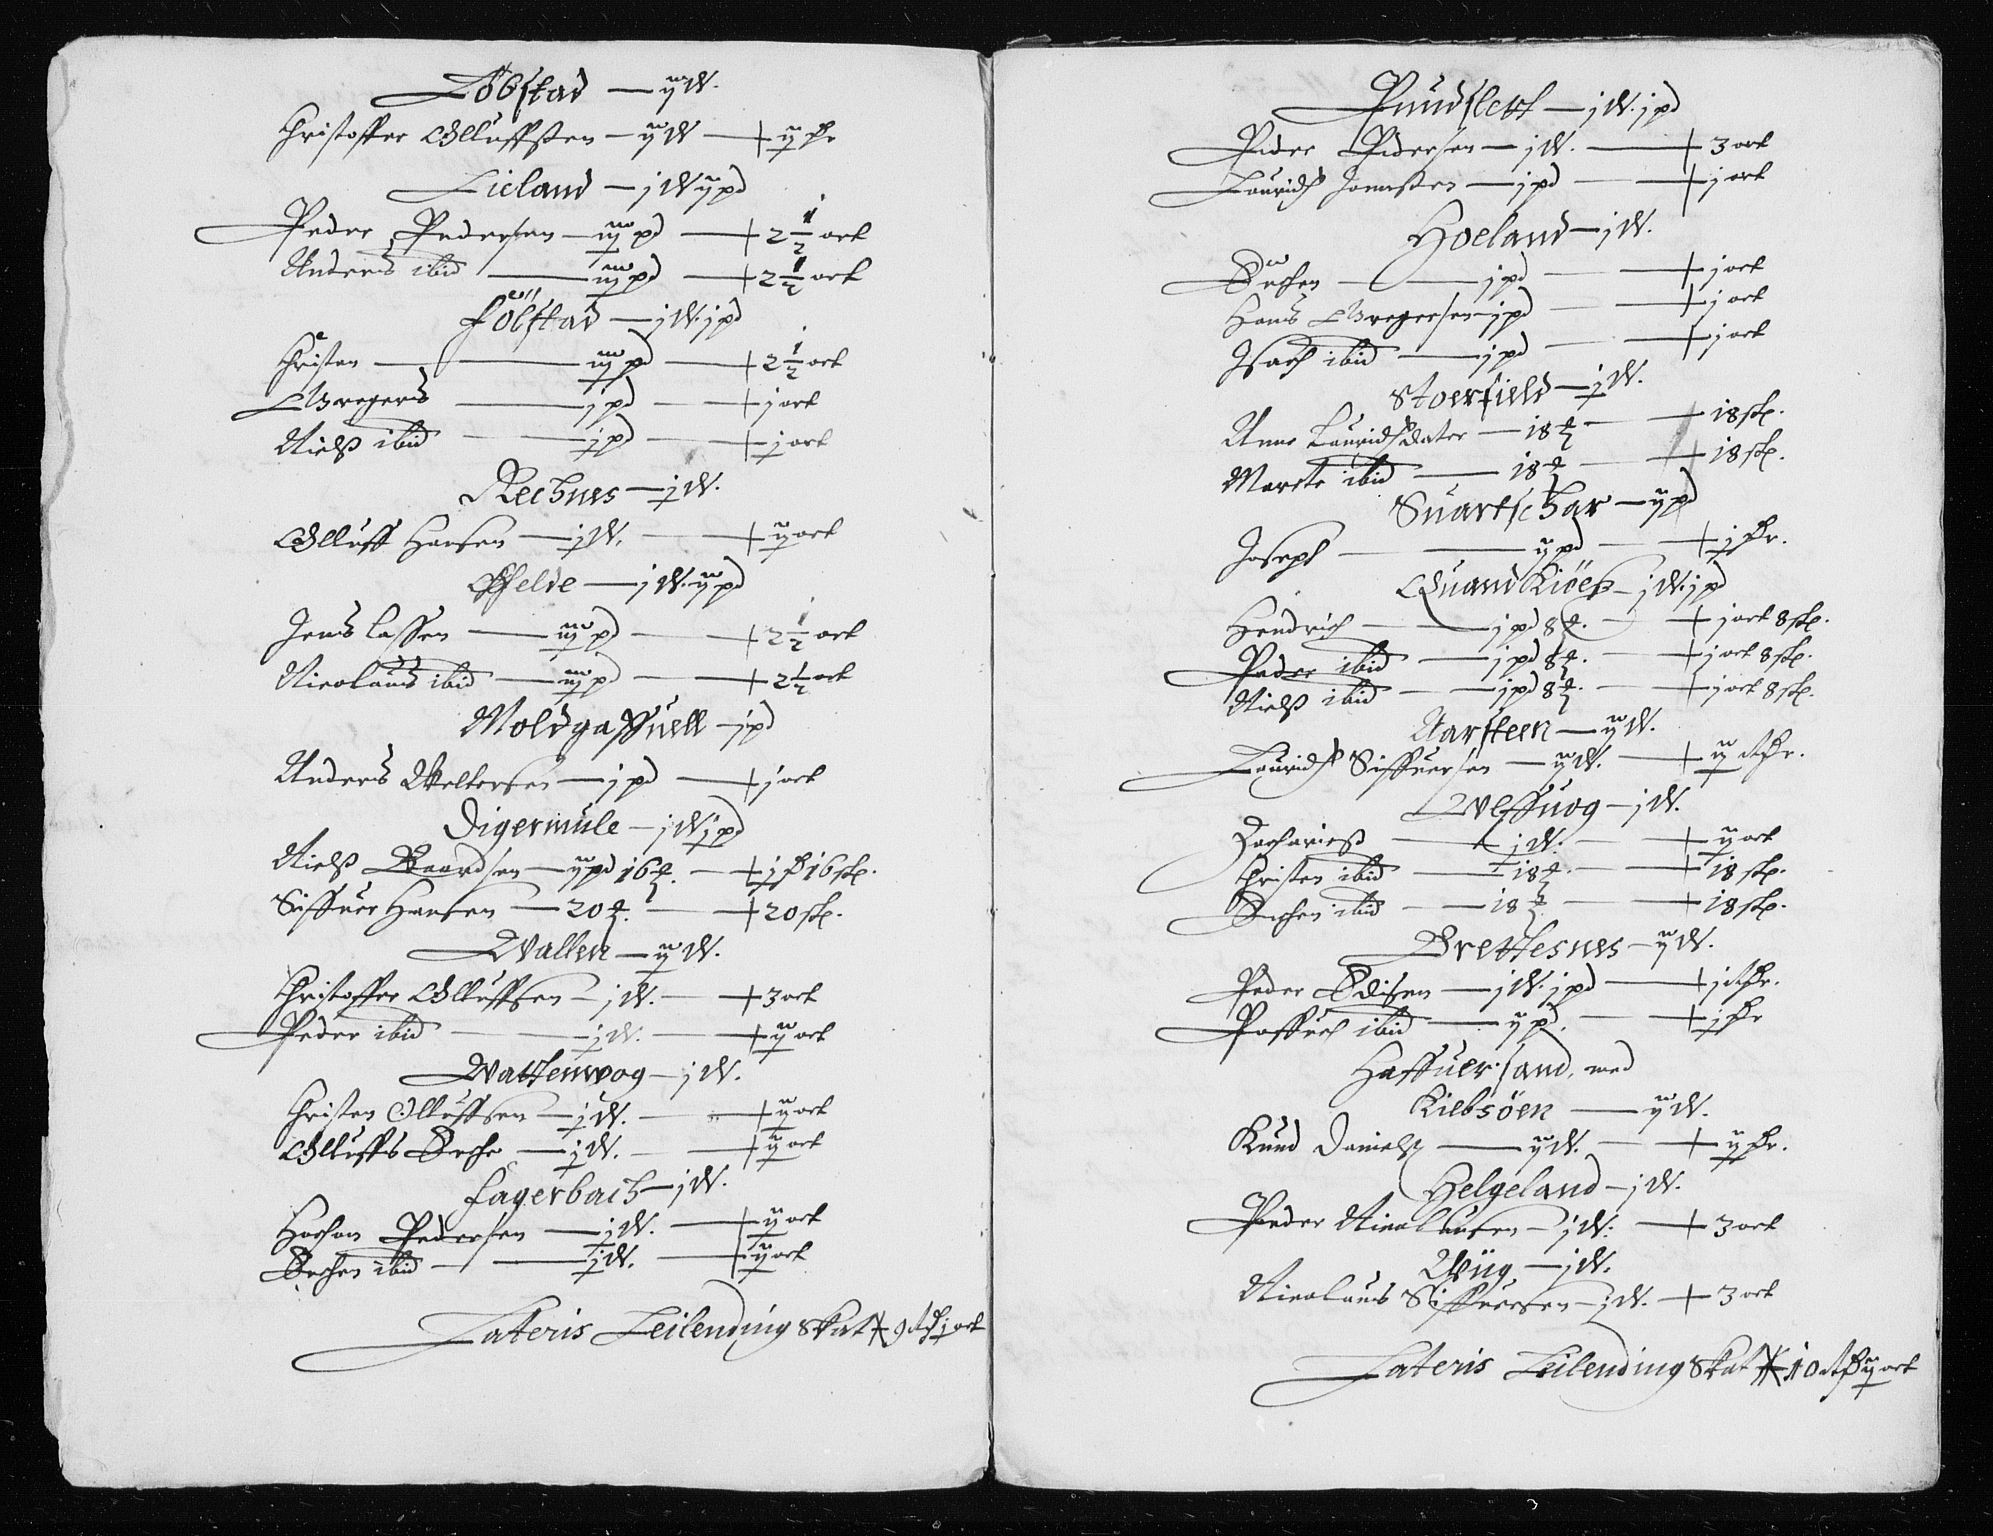 Löbstad — ij W.
Christoffer Olluffsen — ij W — ij Dr
Lieland — j W ij pd
Peder Pedersen — iij pd — 2 1/2 ort
Anders ibid — iij pd — 2 1/2 ort
Fölstad — j W. j pd
Christen — iij pd — 2 1/2 ort
Gregers — j pd — j ort
Nielß ibid — j pd — j ort
Rechnes — j W.
Olluff Hansen — j W. — ij ort
Offelde — j W. ij pd
Jens Lassen — iij pd — 2 1/2 ort
Nicolaus ibid — iij pd — 2 1/2 ort
Moldgaffuell — j pd
Anders Weltersen — j pd — j ort
Digermule — j W j pd
Nielß Baardsen — ij pd 16 ℔. — j D 16 sk.
Siffuer Hansen — 20 ℔. — 20 sk.
Wallen — ij W.
Christoffer Olluffsen — j W. — 3 ort
Peder ibid — j W. — ij ort
Wattenwog — j W.
Christen Olluffsen — j W. — ij ort
Olluffs — j W. — ij ort
Fagerbach — j W.
Haagen Pedersen — j W. — ij ort
ibid — j W. — ij ort
Lateris Leilending Skat 9 Dr j ort
Pundslett — j W. j pd
Peder Pedersen — j W. — 3 ort
Lauridz Jonnssen — j pd — j ort
Hoeland — j W.
— j pd — j ort
Hans Gregersen j pd — j ort
Isach ibid — j pd — j ort
Stoerfield — j W.
Anne Lauridzdater — 18 ℔ — 18 sk.
Marete ibid — 18 ℔ — 18 sk.
Suartschar — ij pd
Joseph — ij pd — j Dr.
Quandkiöep — j W. j pd
Hendrich — j pd 8 ℔. — j ort 8 sk.
Peder ibid — j pd 8 ℔. — j ort 8 sk.
Nielß ibid — j pd 8 ℔. — j ort 8 sk.
Aarsteen — ij W.
Lauridz Siffuersen — ij W. — ij Dr.
Weffuog — j W.
Zacharieß — j W. — ij ort
Christen ibid — 18 ℔. — 18 sk.
ibid — 18 ℔. — 18 sk.
Brettesnes — ij W.
Peder Edisen — j W. j pd — j Dr.
Paffuel ibid — ij pd. — j Dr
Haffuersand, med
Kiebsöen — ij W.
Knud Danielß — ij W. — ij Dr.
Helgeland — j W.
Peder Nicolausen — j W. — 3 ort
— j W.
Nicolaus Siffuersen — j W. — 3 ort
Lateris Leilending Skat 10 Dr ij ort